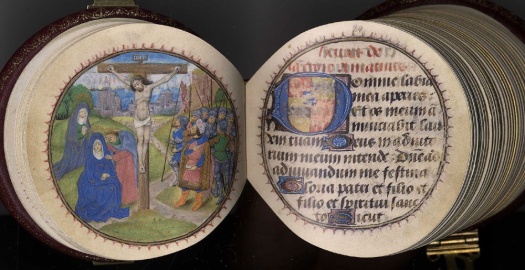 INRI
Domine labia
mea aperies
Et os meum a
nunciabit lau
dem tuam Deus in adiuto
rium meum intende
adiuuandum me festina
Gloria patri et filio et
filio et spiritui sanc
to Sicut